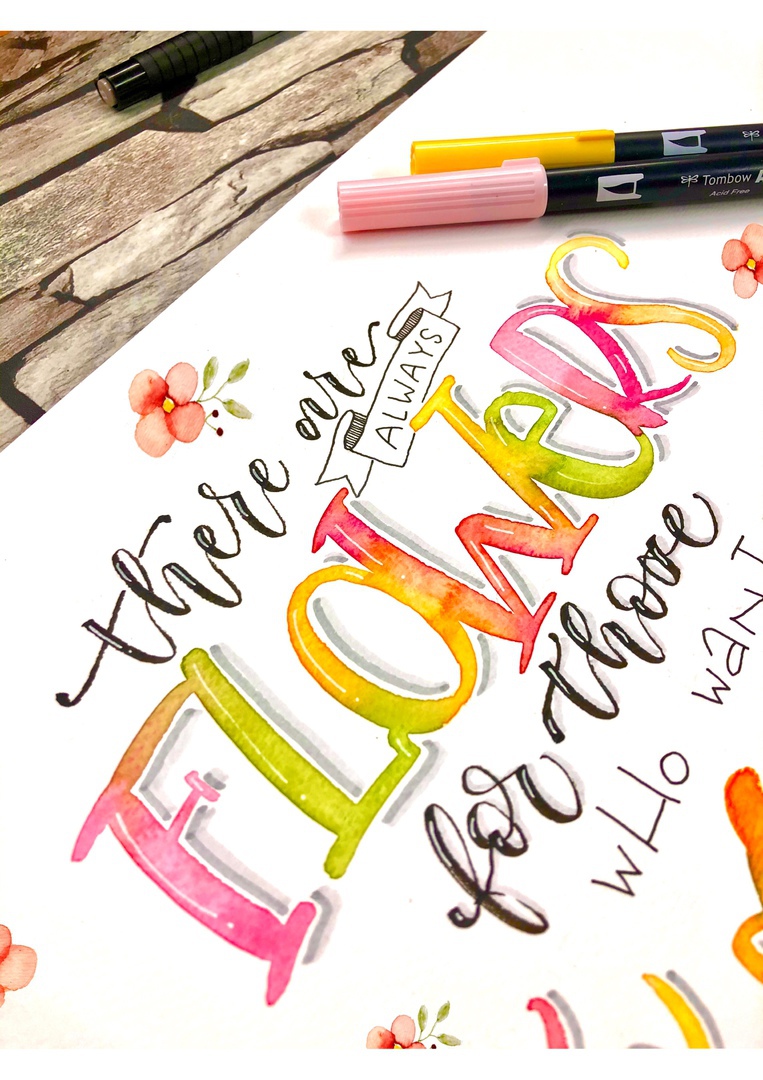 Tombow
Acid Free
there are ALWAYS
FLOWeRS
for those
wHo waNT